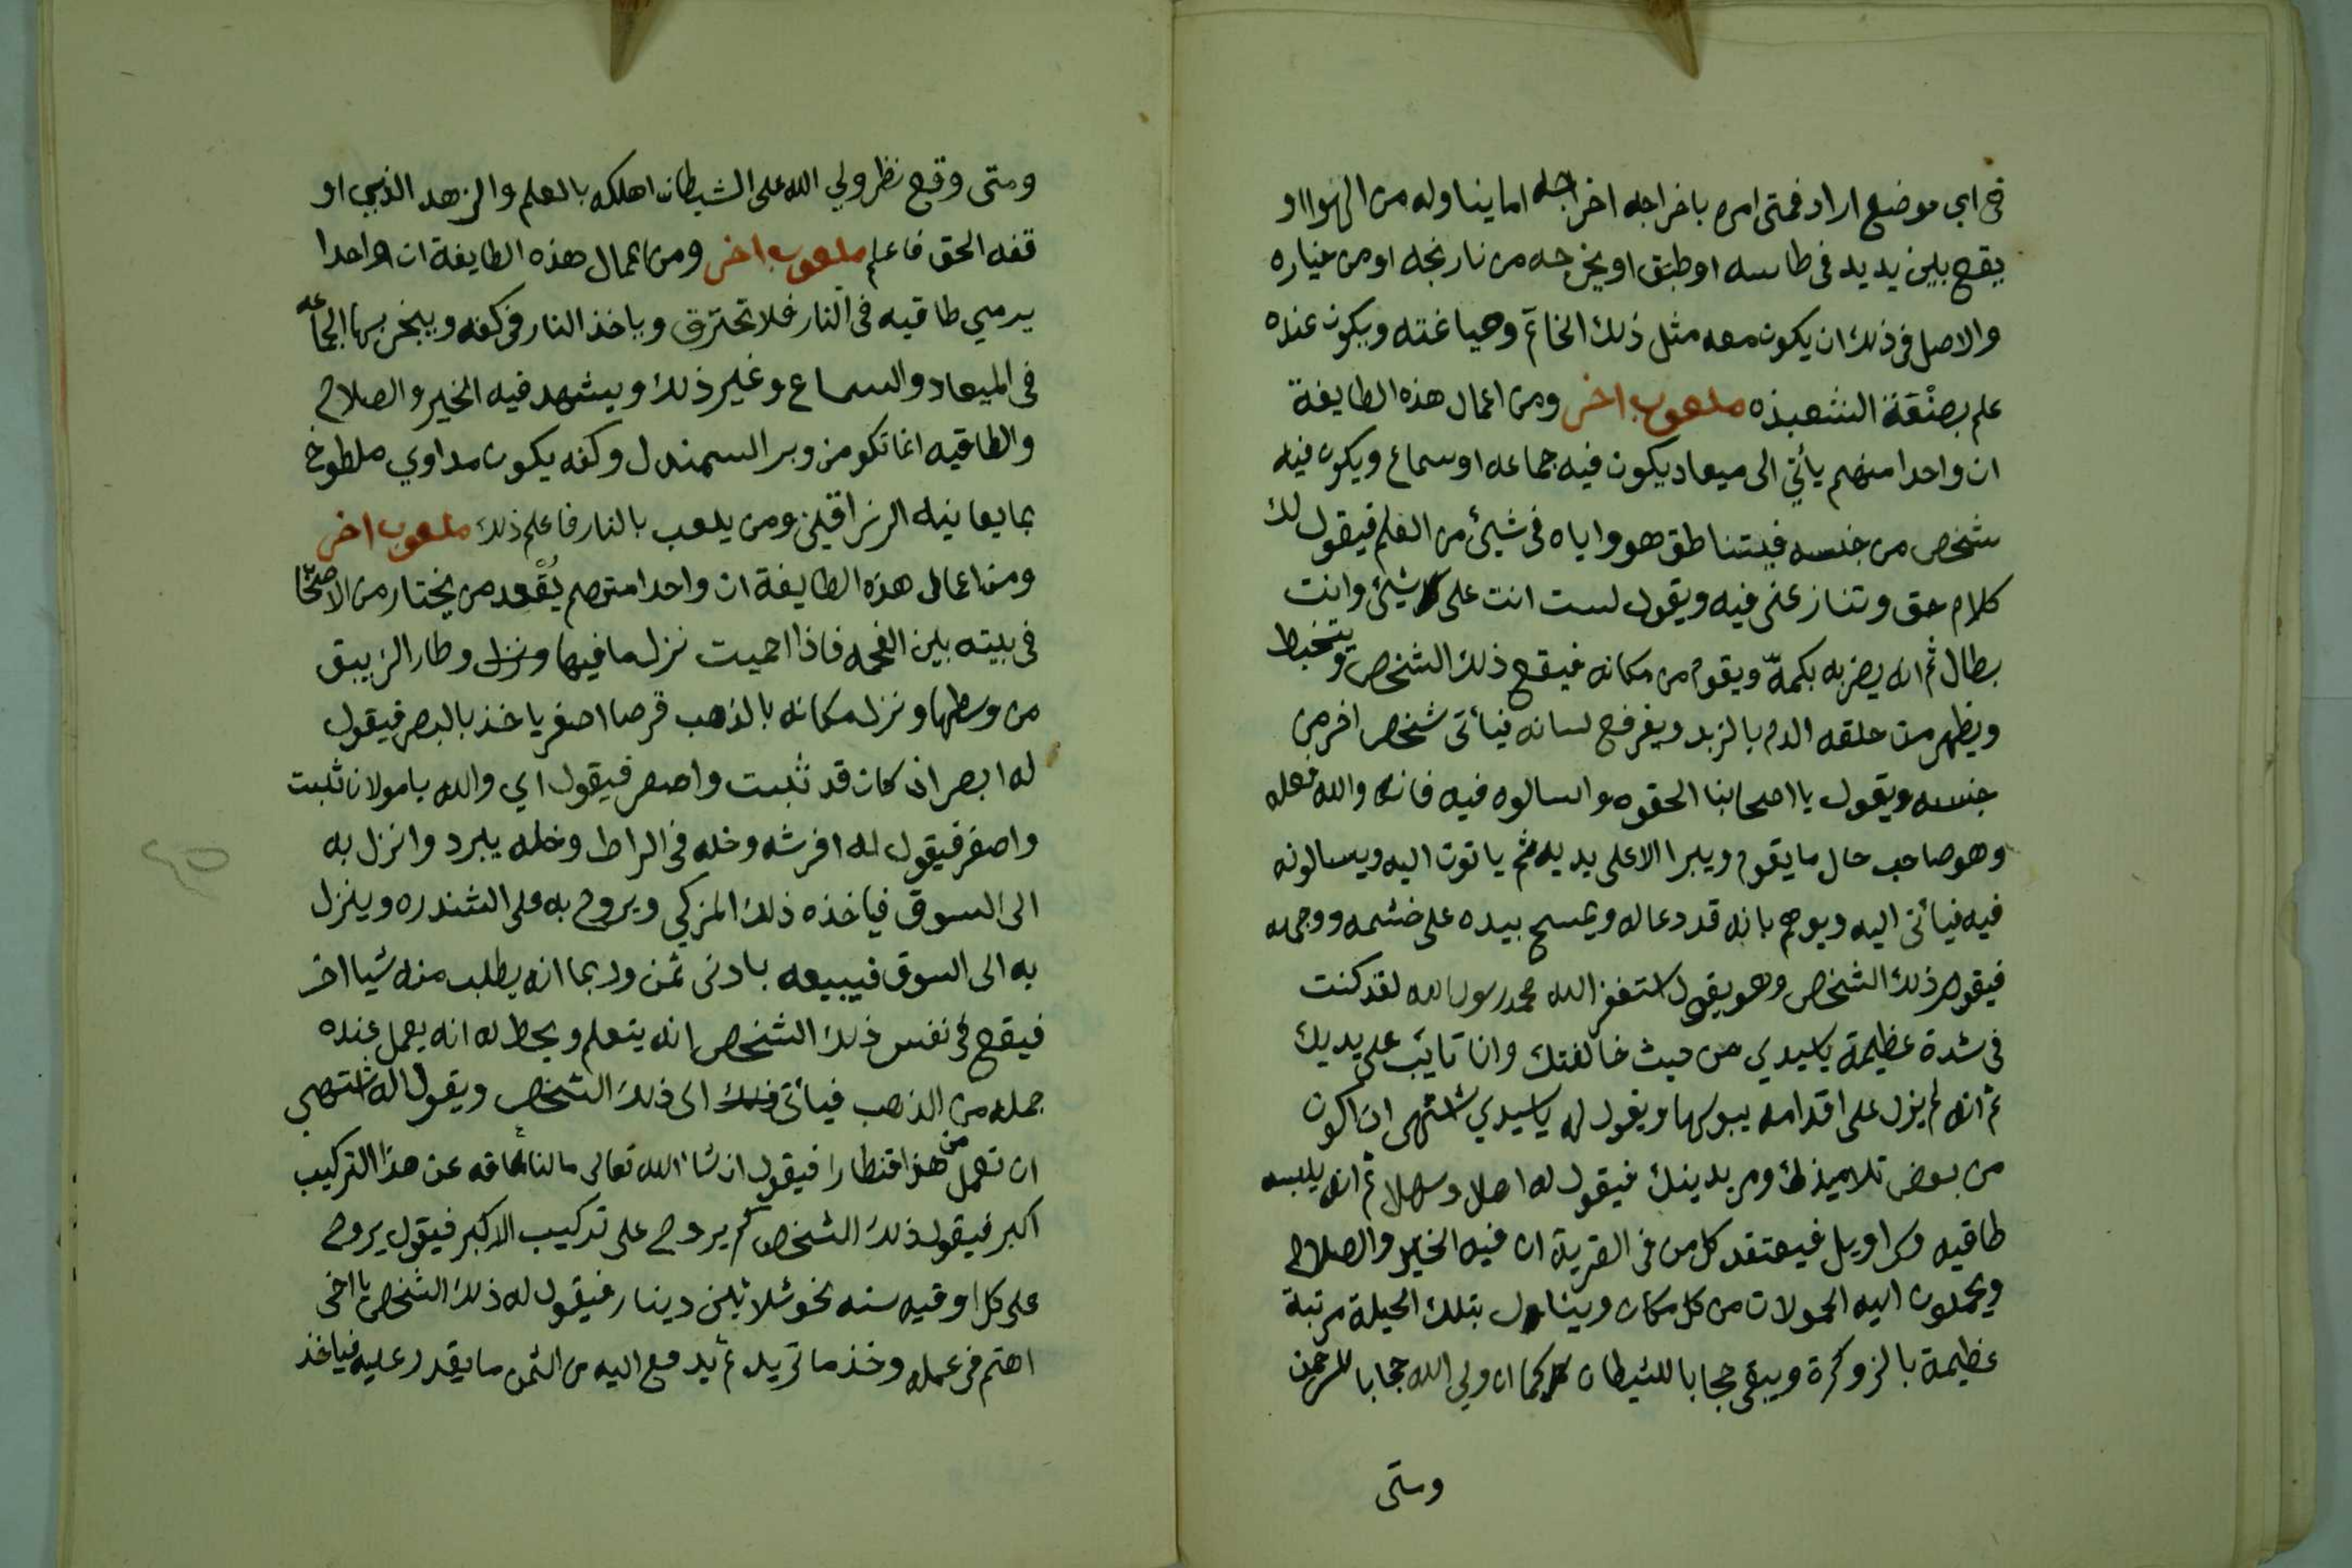 في اي موضع اراد فمتى امره باخراجه اخراجه اما يناوله من الهوا او
يقع بين يديه في طاسه او طبق او يخرجه من نارنجه او من خياره
والاصل في ذلك ان يكون معه مثل ذلك الخاتم وصياغته ويكون عنده
علم بصنعة الشعبذه ملعوب اخر ومن اعمال هذه الطايفة
ان واحدا منهم يأتي الى ميعاد يكون فيه جماعه او سماع ويكون فيه
شخص من جنسه فيتناطق هو واياه في شيئ من العلم فيقول لك
كلام حق وتنازعني فيه ويقول لست انت على شيئ وانت
بطال ثم انه يضربه بكمه ويقوم من مكانه فيقع ذلك الشخص ويتخبط
ويظهر من حلقه الدم بالزبد ويفرفح لسانه فيأتى شخص اخر من
جنسه ويقول يا اصحابنا الحقوه واسالوه فيه فانه والله فعله
وهو صاحب حال ما يقوم ويبرا الا على يديه ثم ياتون اليه ويسالونه
فيه فيأتى اليه ويوهم بانه قد دعا له ويمسح بيده على خشمه ووجهه
فيقوم ذلك الشخص وهو يقول استغفر الله محمد رسول الله لقد كنت
في شدة عظيمة يا سيدي من حيث خالفتك وانا تايب على يديك
ثم انه لم يزل على اقدامه يبوسها ويقول له يا سيدي اشتهى ان اكون
من بعض تلاميذك ومريدينك فيقول له اهلا وسهلا ثم انه يلبسه
طاقيه وسراويل فيعتقد كل من في القرية ان فيه الخير والصلاح
ويحملون اليه الحمولات من كل مكان ويتناول بتلك الحيلة مرتبة
عظيمة بالزوكرة ويبقى حجابا للشيطان كما ان ولي الله حجابا للرحمن
ومتى
ومتى وقع نظر ولي الله على الشيطان اهلكه بالعلم والزهد الذي او
قفه الحق فاعلم ملعوب اخر ومن اعمال هذه الطايفة ان واحدا
يرمي طاقيه في النار فلا تحترق وياخذ النار في كفه ويبخر بها الجماعه
في الميعاد والسماع وغير ذلك ويشهد فيه الخير والصلاح
والطاقيه انما تكو من وبر السمندل وكفه يكون مداوي ملطوخ
بما يعانيه الزراقين ومن يلعب بالنار فاعلم ذلك ملعوب اخر
ومن اعمال هذه الطايفة ان واحدا منهم يُقْعد من يختار من الاصحاب
في بيته بين الفحمه فاذا احميت نزل ما فيها ونزل وطار الزيبق
من وسطها ونزل مكانه بالذهب قرصا اصفر ياخذ بالبصر فيقول
له ابصر ان كان قد ثبت واصفر فيقول اي والله يا مولانا ثبت
واصفر فيقول له افرشه وخله في الراط وخله يبرد وانزل به
الى السوق فياخذه ذلك المزكي ويروح به على الشندره وينزل
به الى السوق فيبيعه بادنى ثمن وربما انه يطلب منه شيا اخر
فيقع في نفس ذلك الشخص انه يتعلم ويحط له انه يعمل عنده
جمله من الذهب فيأتى ذلك الى ذلك الشخص ويقول له اشتهى
ان تعمل من هذا قنطارا فيقول ان شا الله تعالى ما لنا عاقه عن هذا التركيب
اكبر فيقول ذلك الشخص كم يروح على تركيب الاكبر فيقول يروح
على كل اوقيه سته نحو ثلاثين دينار فيقول له ذلك الشخص يا اخى
اهتم في عمله وخذ ما تريد ثم يدفع اليه من الثمن ما يقدر عليه فياخذ